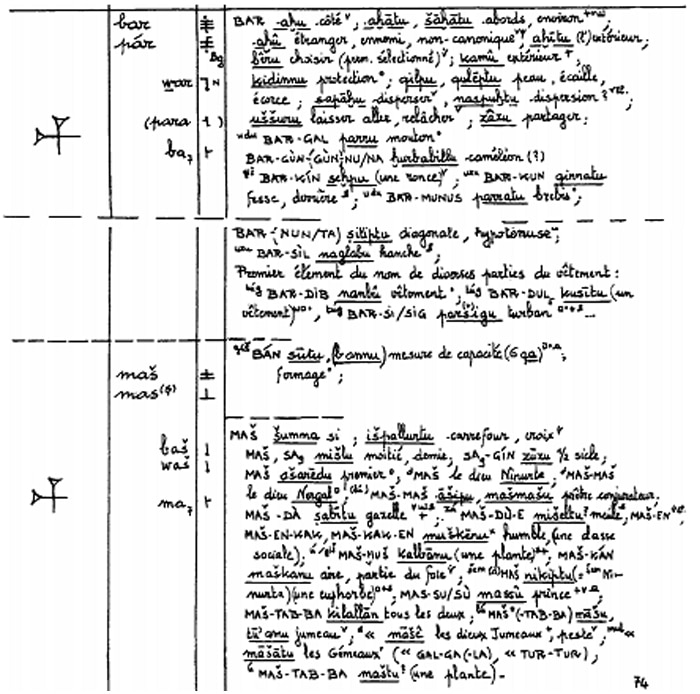 bar BAR ahu côté ; ahātu, šāhātu abords, environ
pár ahû étranger, ennemi, non-canonique ; ahītu (l')extérieur;
bêru choisir (pren. sélectionné) ; kamû extérieur ;
war kidinnu protection ; qilpu, qulēptu peau, écaille,
écorce ; sapāhu disperser, naspuhtu dispersion ? ;
(para ) uššuru laisser aller, relâcher ; zâzu partager ;
udu BAR-GAL parru mouton
ba₇ BAR-GÙN-(GÙN)NU/NA hurbabillu caméléon (?)
giš BAR-KÍN sehpu (une ronce) ; uzu BAR-KUN ginnatu
fesse, derrière ; udu BAR-MUNUS parratu brebis ;
BAR-(NUN/TA) ṣiliptu diagonale, hypoténuse ;
uzu BAR-SÌL naglabu hanche ;
Premier élément du nom de diverses parties du vêtement :
túg BAR-DIB nanbû vêtement , túg BAR-DUL kusītu (un
vêtement) , túg BAR-SI/SIG paršigu turban ...
giš BÁN sūtu, (bannu) mesure de capacité (6 qa) ;
maš fermage ;
mas(ṣ)
MAŠ šumma si ; išpallurtu carrefour, croix
baš MAŠ, SA₉ mišlu moitié, demie, SA₉-GÍN zūzu ½ sicle ;
waš MAŠ ašarēdu premier ; MAŠ le dieu Ninurta, MAŠ-MAŠ
le dieu Nergal ; (lú) MAŠ-MAŠ āšipu, mašmašu prêtre conjurateur,
ma₇ MAŠ-DÀ ṣabītu gazelle ; MAŠ-DÙ-E mišeltu? meule, MAŠ-EN
MAŠ-EN-KAK, MAŠ-KAK-EN muškēnu humble, (une classe
sociale) ; MAŠ-HUŠ kalbānu (une plante) , MAŠ-KÁN
maškanu aire, partie du foie ; MAŠ nikiptu (= šim Ni-
nurta) (une euphorbe) ; MAS-SU/SÙ massû prince
MAŠ-TAB-BA kilallān tous les deux ; MAŠ (-TAB-BA) māšu,
tū'amu jumeau ; « māšē les dieux Jumeaux , peste ; mul «
māšātu les Gémeaux (« GAL-GA(-LA), « TUR-TUR) ;
ú MAŠ-TAB-BA maštu? (une plante).
74